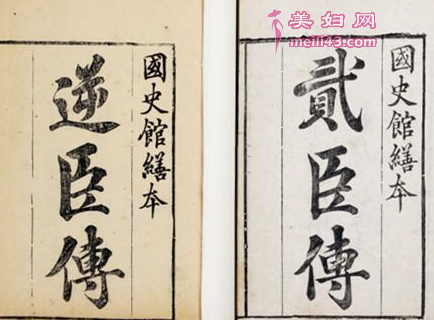 國史館繕本
貳臣傳
國史館繕本
逆臣傳
美妇网
meili43.com